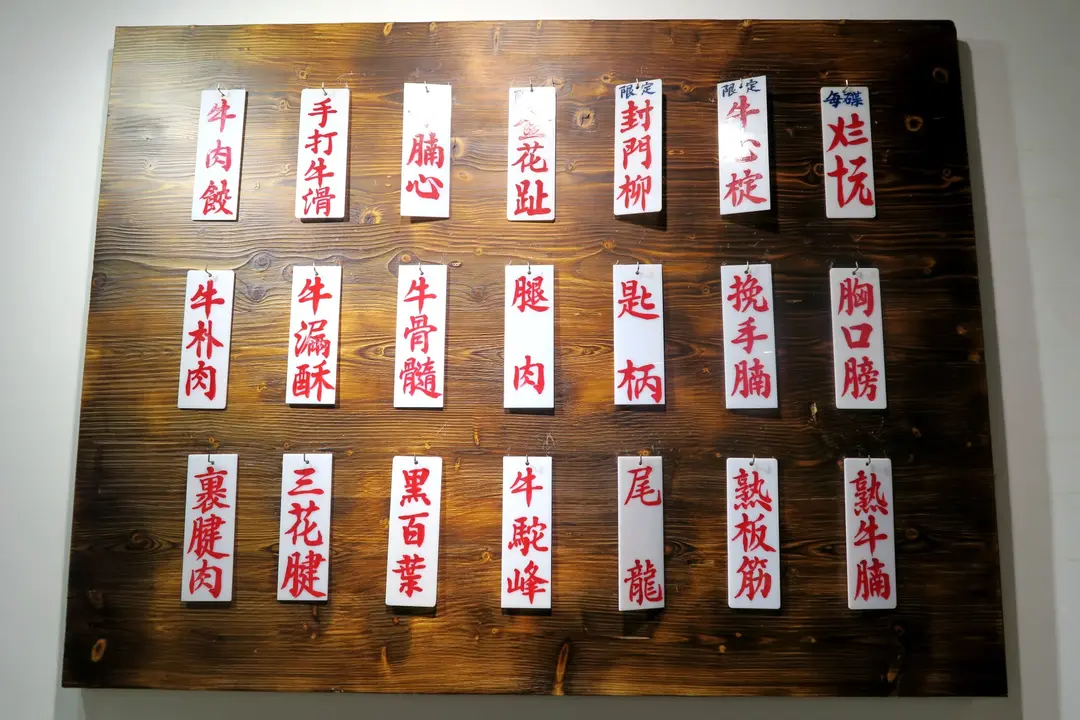 牛肉餃
手打牛滑
腩心
花趾
限定
封門柳
限定
牛心椗
每碟
牛朴肉
牛漏酥
牛骨髓
腿肉
匙柄
挽手腩
胸口膀
裹腱肉
三花腱
黑百葉
牛駝峰
尾龍
熟板筋
熟牛腩